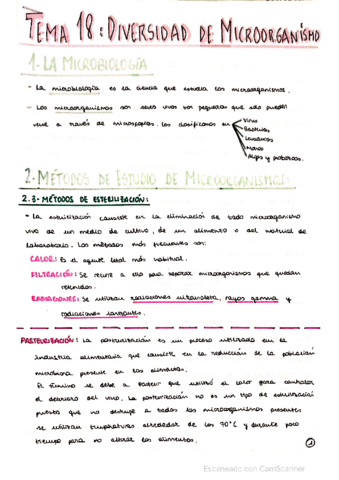 TEMA 18: DIVERSIDAD DE MICROORGANISMO
1-LA MICROBIOLOGÍA
- La microbiología es la ciencia que estudia los microorganismos.
- Los microorganismos son seres vivos tan pequeños que solo pueden
verse a través de microscopios. Los clasificamos en
Virus
Bacterias
Levaduras
Mohos
Algas y protozoos.
2-MÉTODOS DE ESTUDIO DE MICROORGANISMOS:
2.3-MÉTODOS DE ESTERILIZACIÓN:
- La esterilización consiste en la eliminación de todo microorganismo
vivo de un medio de cultivo, de un alimento o del material de
laboratorio. Los métodos más frecuentes son:
CALOR: Es el agente letal más habitual.
FILTRACIÓN: Se recurre a ella para separar microorganismos que quedan
retenidos.
RADIACIONES: Se utilizan radiaciones ultravioleta, rayos gamma y
radiaciones ionizantes.
PASTEURIZACIÓN: La pasteurización es un proceso utilizado en la
industria alimentaria que consiste en la reducción de la población
microbiana presente en los alimentos.
El término se debe a Pasteur que utilizó el calor para controlar
el deterioro del vino. La pasteurización no es un tipo de esterilización
puesto que no destruye a todos los microorganismos presentes
se utilizan temperaturas alrededor de los 70°C y durante poco
tiempo para no alterar los alimentos.
1
Escaneado con CamScanner